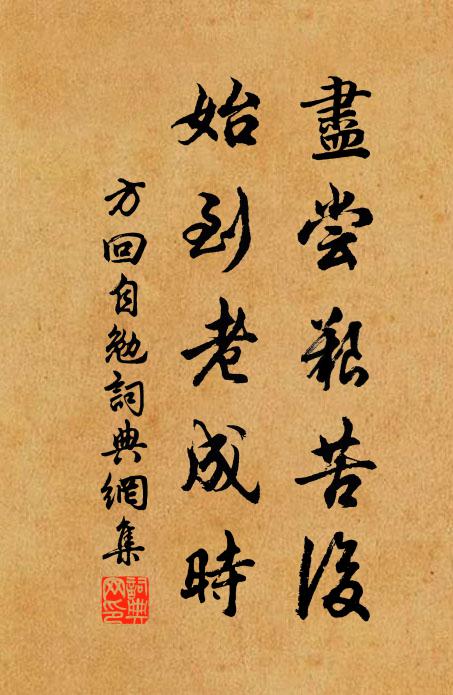 盡嘗艱苦後
始到老成時
方回自勉詞典網集
詞典網印